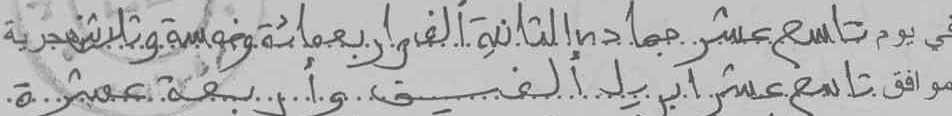 في يوم تاسع عشر جمادى الثانية ألف وأربعمائة وخمسة وثلاثين هجرية
موافق تاسع عشر ابريل ألفين وأربعة عشرة